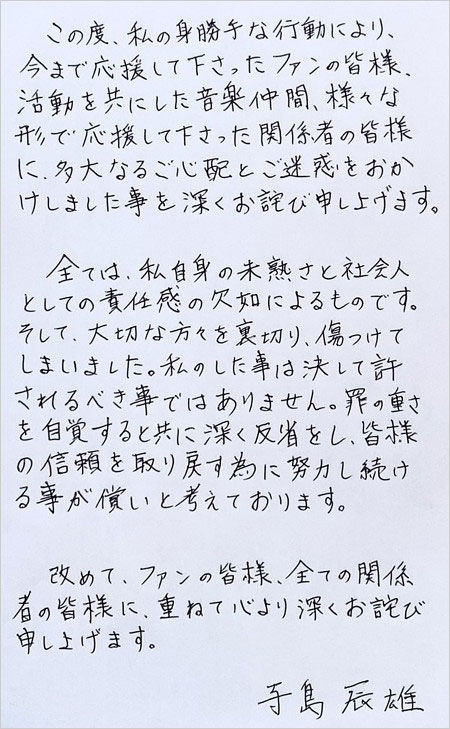 この度、私の身勝手な行動により、
今まで応援して下さったファンの皆様、
活動を共にした音楽仲間、様々な
形で応援して下さった関係者の皆様
に、多大なるご心配とご迷惑をおか
けしました事を深くお詫び申し上げます。
全ては、私自身の未熟さと社会人
としての責任感の欠如によるものです。
そして、大切な方々を裏切り、傷つけて
しまいました。私のした事は決して許
されるべき事ではありません。罪の重さ
を自覚すると共に深く反省をし、皆様
の信頼を取り戻す為に努力し続け
る事が償いと考えております。
改めて、ファンの皆様、全ての関係
者の皆様に、重ねて心より深くお詫び
申し上げます。
寺島 辰雄